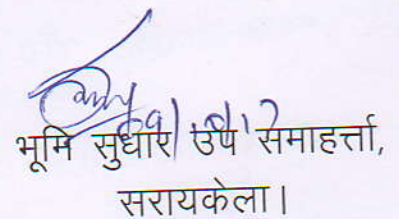 भूमि सुधार उप समाहर्त्ता,
सरायकेला।